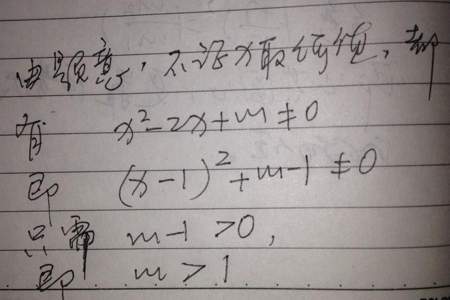 由题意，不论x取何值，都
有 x²-2x+m≠0
即 (x-1)²+m-1≠0
只需 m-1>0，
即 m>1